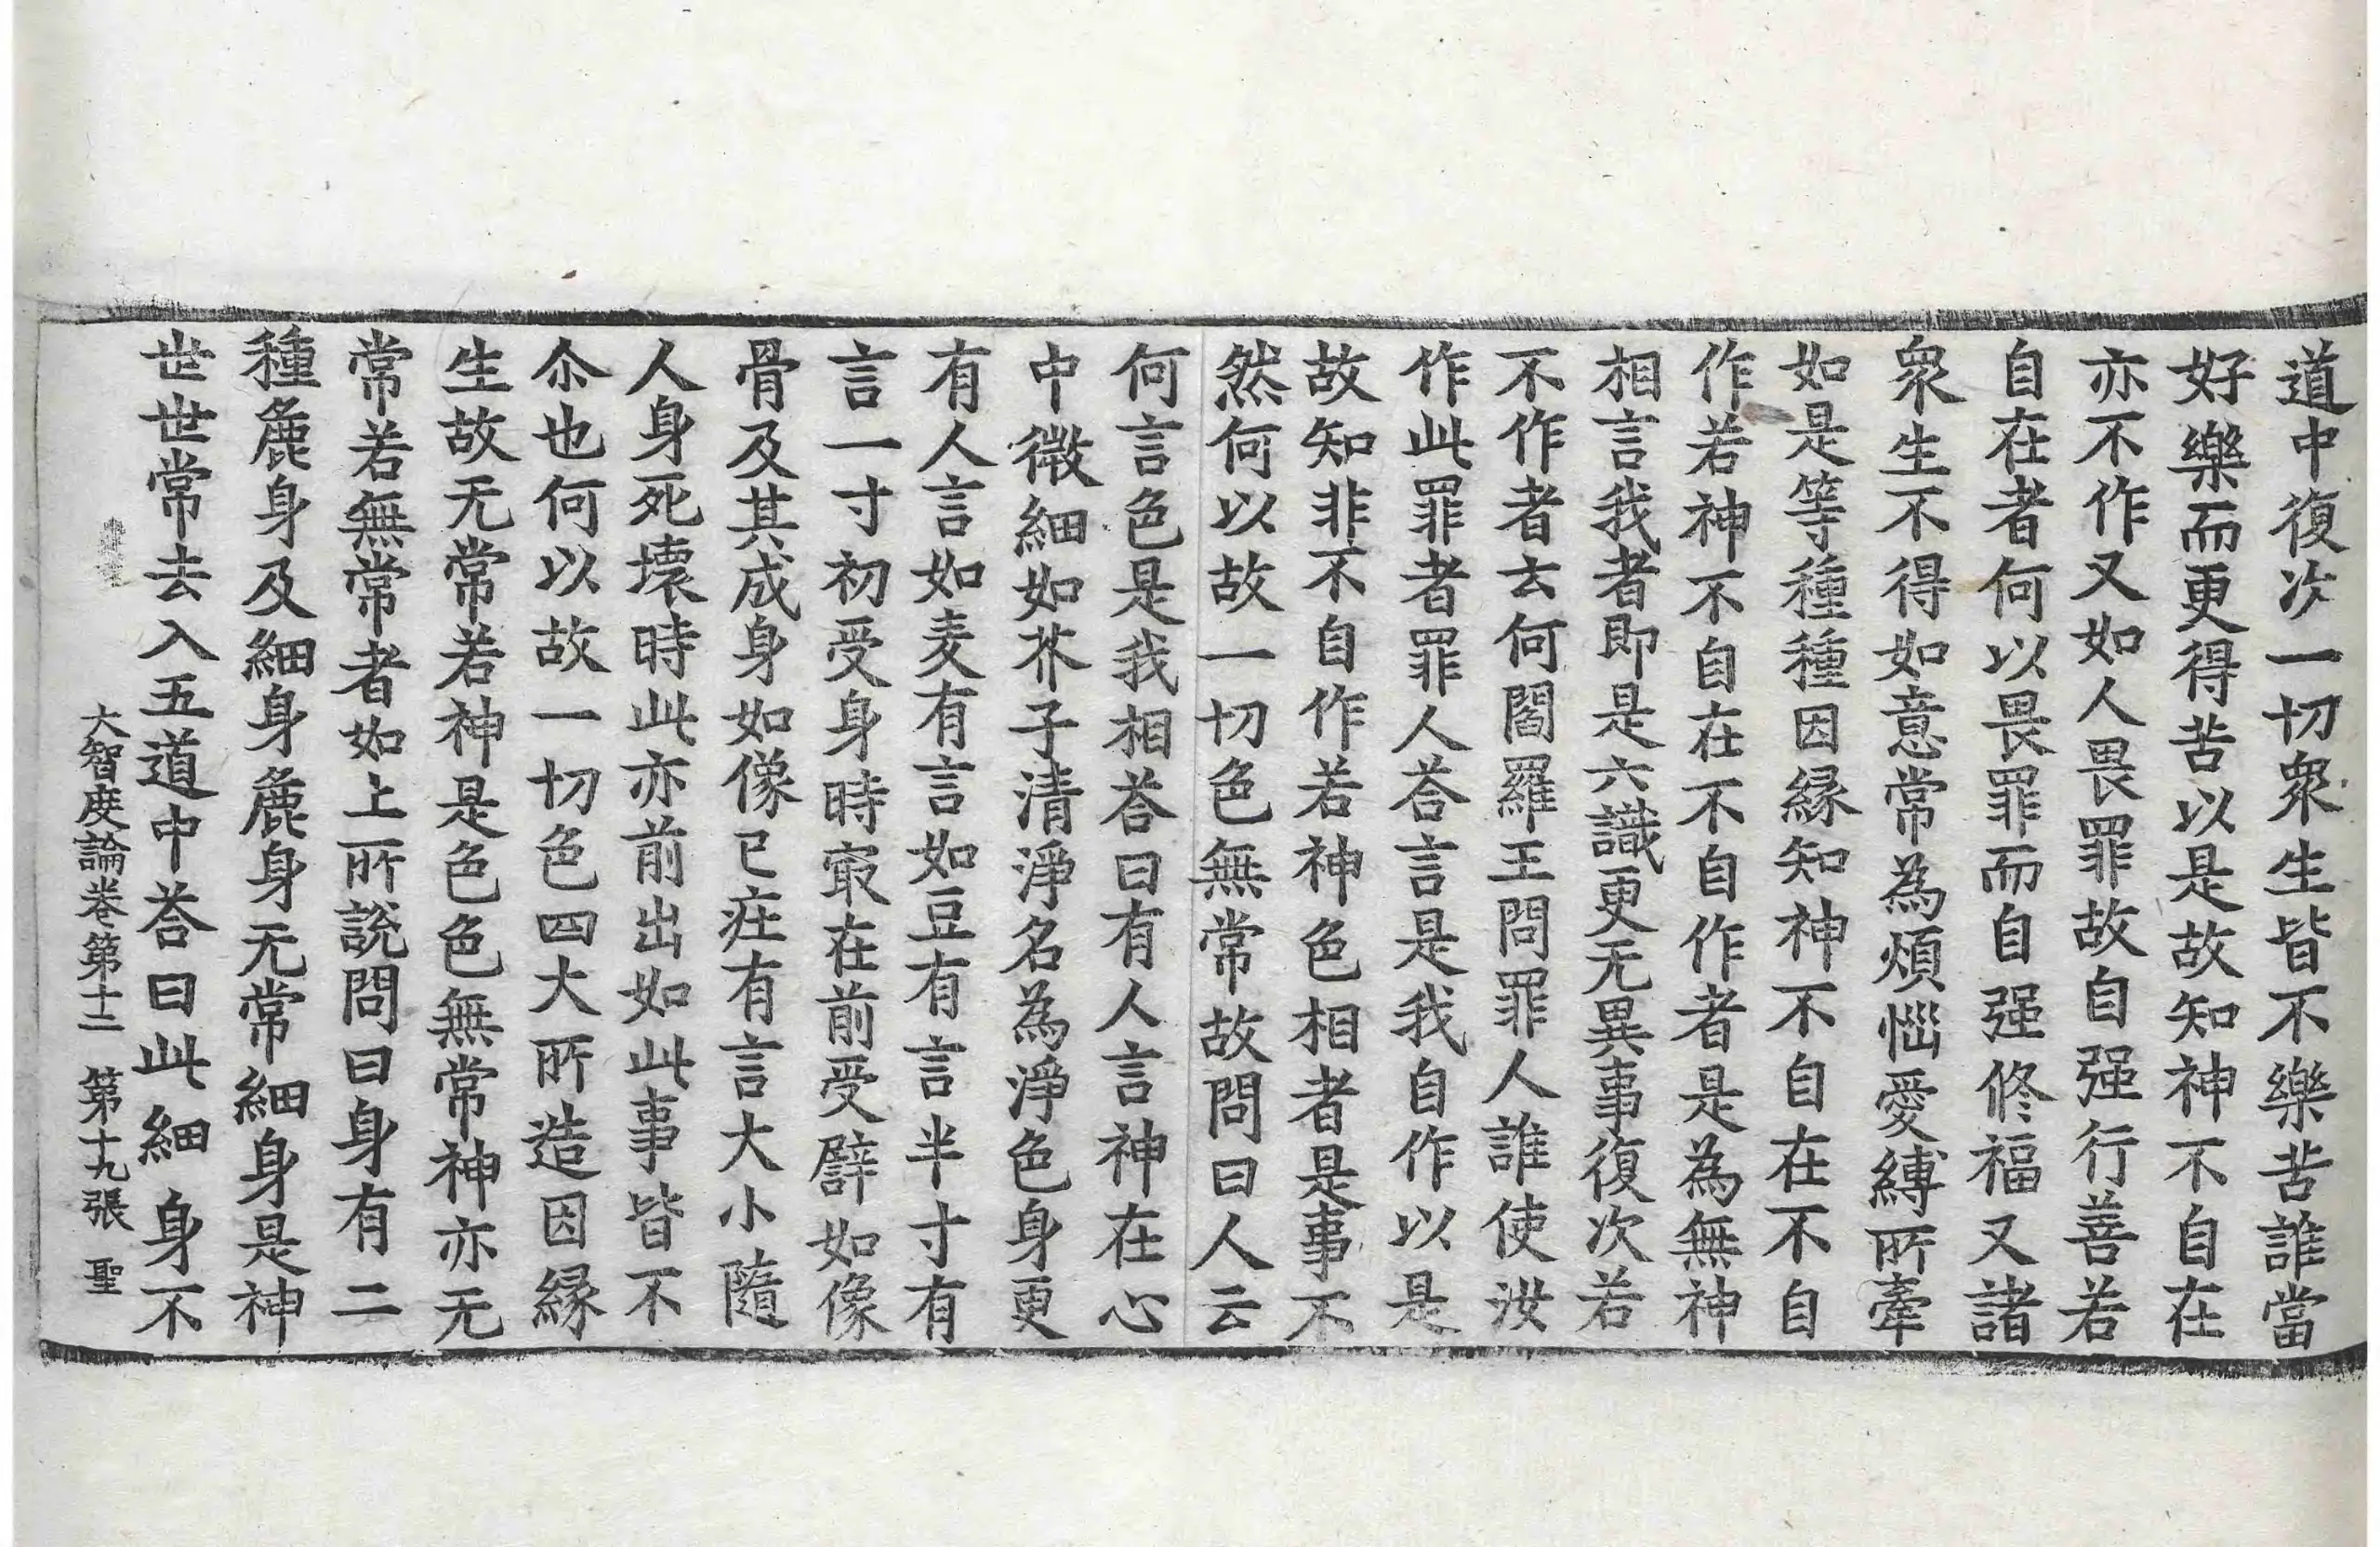 道中復次一切衆生皆不樂苦誰當
好樂而更得苦以是故知神不自在
亦不作又如人畏罪故自强行善若
自在者何以畏罪而自强修福又諸
衆生不得如意常為煩惱愛縛所牽
如是等種種因緣知神不自在不自
作若神不自在不自作者是為無神
相言我者即是六識更无異事復次若
不作者云何閻羅王問罪人誰使汝
作此罪者罪人荅言是我自作以是
故知非不自作若神色相者是事不
然何以故一切色無常故問曰人云
何言色是我相荅曰有人言神在心
中微細如芥子清淨名為淨色身更
有人言如麦有言如豆有言半寸有
言一寸初受身時㝡在前受譬如像
骨及其成身如像已疘有言大小隨
人身死壞時此亦前出如此事皆不
尒也何以故一切色四大所造因緣
生故无常若神是色色無常神亦无
常若無常者如上所說問曰身有二
種麁身及細身麁身无常細身是神
世世常去入五道中荅曰此細身不
大智度論卷第十二 第十九張 聖